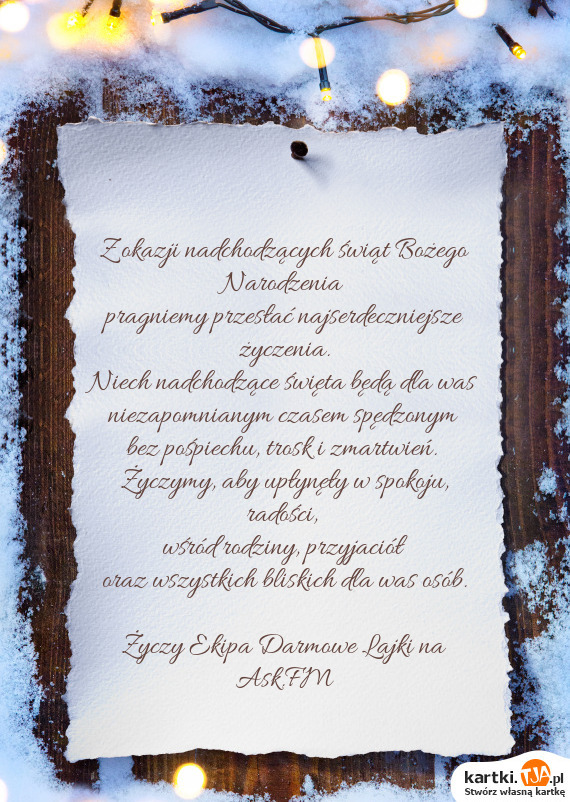 Z okazji nadchodzących świąt Bożego
Narodzenia
pragniemy przesłać najserdeczniejsze
życzenia.
Niech nadchodzące święta będą dla was
niezapomnianym czasem spędzonym
bez pośpiechu, trosk i zmartwień.
Życzymy, aby upłynęły w spokoju,
radości,
wśród rodziny, przyjaciół
oraz wszystkich bliskich dla was osób.
Życzy Ekipa Darmowe Lajki na
Ask.FM
kartki.TJA.pl
Stwórz własną kartkę